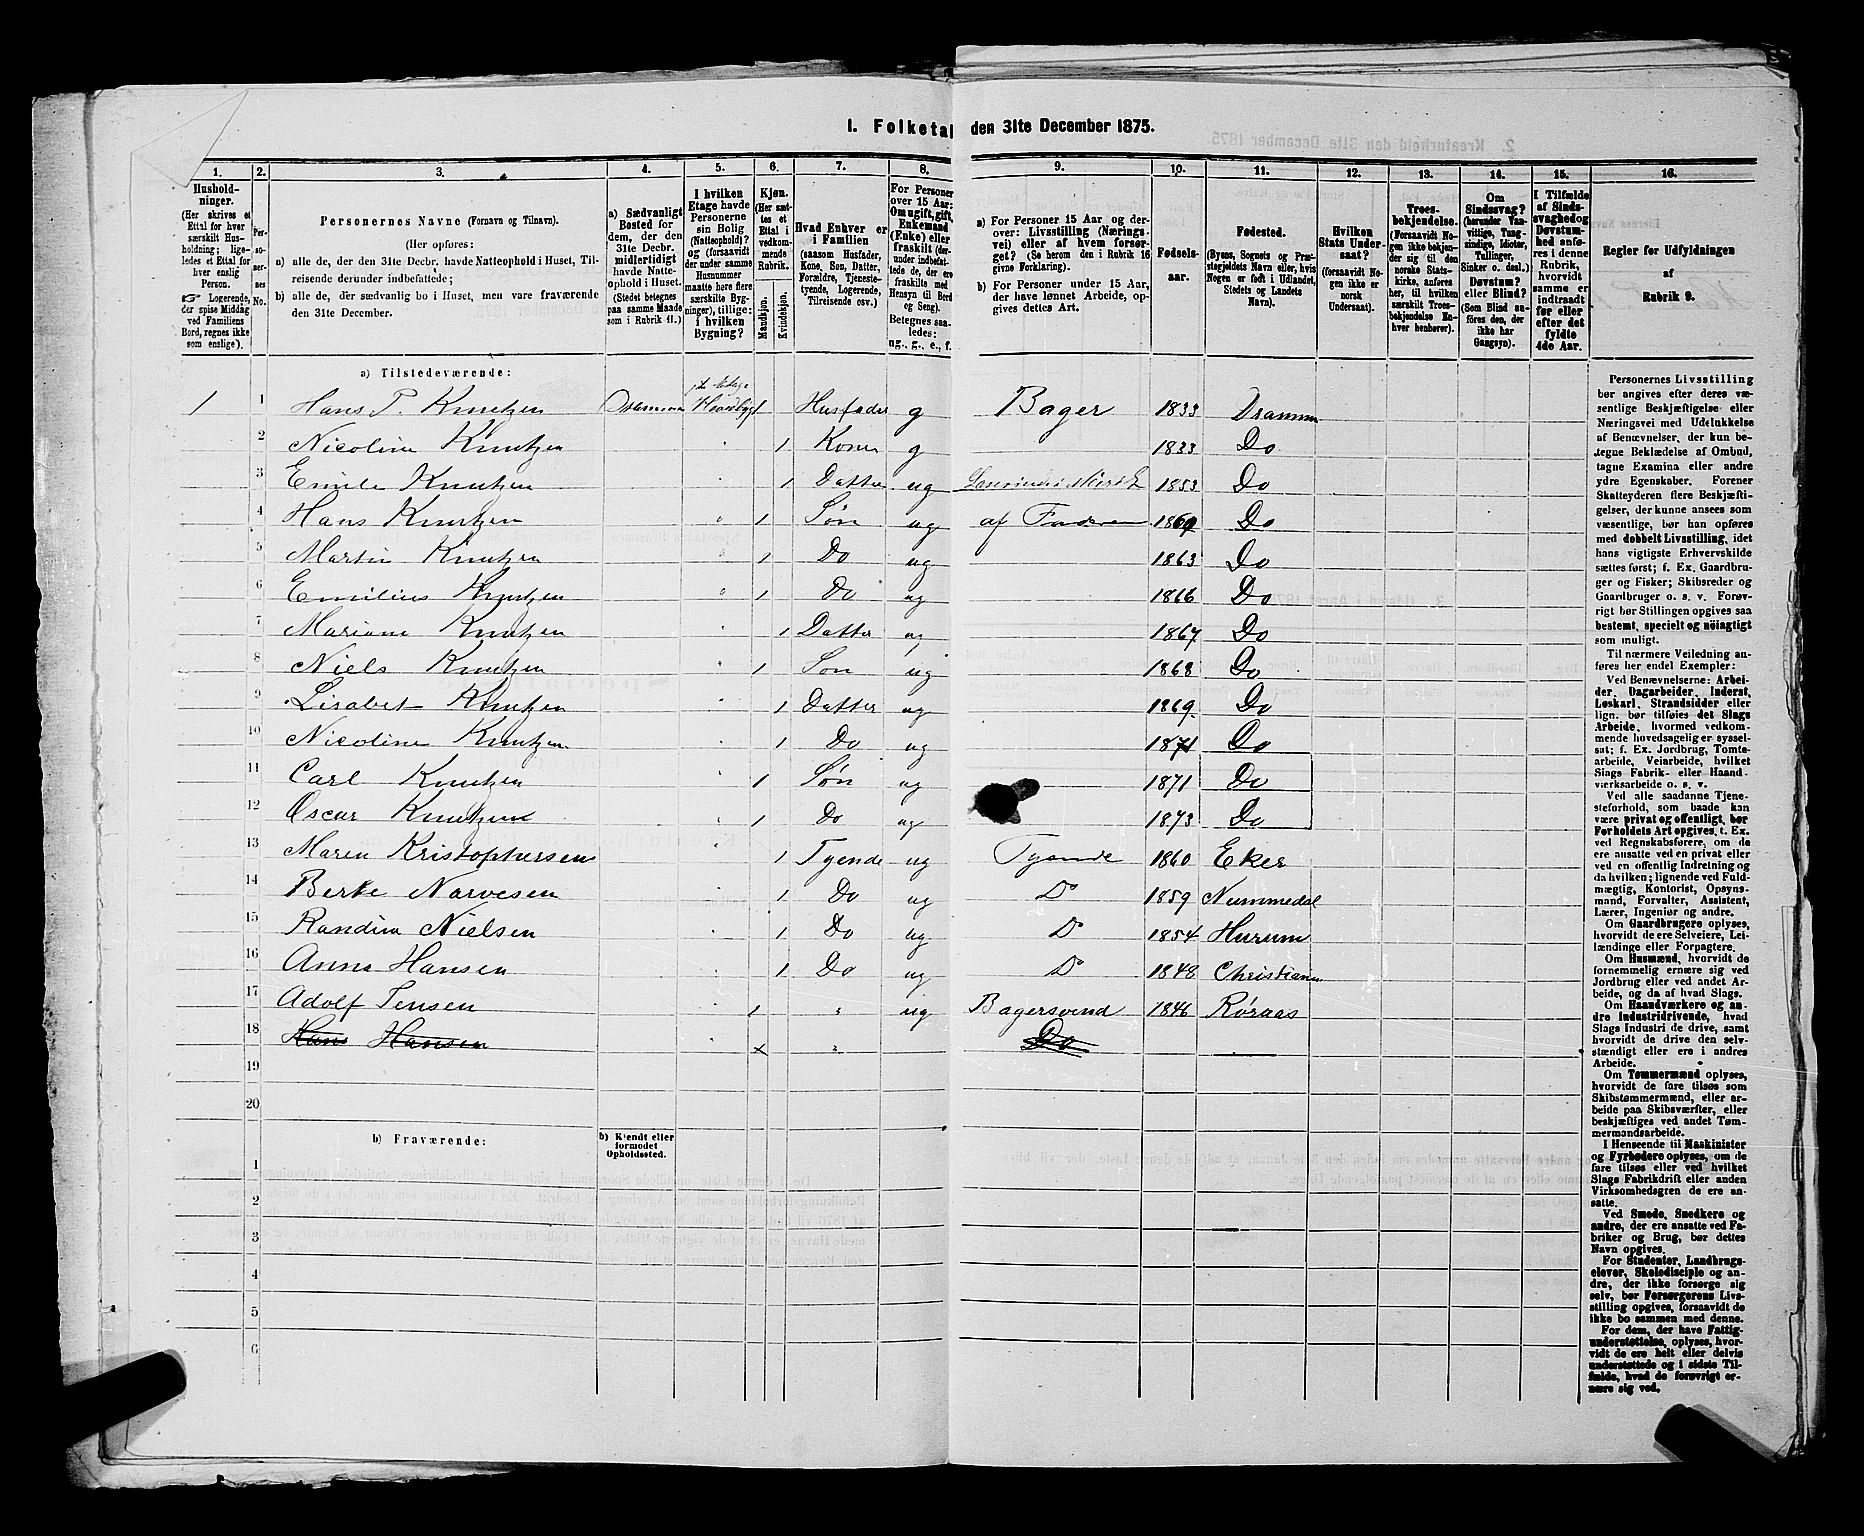 1. Folketal den 31te December 1875.
1. 2. 3. 4. 5. 6. 7. 8. 9. 10. 11. 12. 13. 14. 15. 16.
Hushold-
ninger.
(Her skrives et
Ettal for hver
særskilt Hus-
holdning; lige-
ledes et Ettal for
hver enslig
Person.
☞ Logerende,
der spise Middag
ved Familiens
Bord, regnes ikke
som enslige).
Per-
so-
ner-
nes
No.
Personernes Navne (Fornavn og Tilnavn).
(Her opføres:
a) alle de, der den 31te Decbr. havde Natteophold i Huset, Til-
reisende derunder indbefattede;
b) alle de, der sædvanlig bo i Huset, men vare fraværende
den 31te December.
a) Sædvanligt
Bosted for
dem, der den
31te Decbr.
midlertidigt
havde Natte-
ophold i Huset.
(Stedet betegnes
paa samme Maade
som i Rubrik 11.)
I hvilken
Etage havde
Personerne
sin Bolig
(Natteophold)?
og (forsaavidt
der under samme
Husnummer
maatte høre flere
særskilte Byg-
ninger), tillige:
i hvilken
Bygning?
Kjøn.
(Her sæt-
tes et
Ettal i
vedkom-
mende
Rubrik.)
Mandkjøn.
Kvindekjøn.
Hvad Enhver er
i Familien
(saasom Husfader,
Kone, Søn, Datter,
Forældre, Tjeneste-
tyende, Logerende,
Tilreisende osv.)
For Personer
over 15 Aar:
Om ugift, gift,
Enkemand
(Enke) eller
fraskilt (der-
under indbefat-
tede de, der ere
fraskilte med
Hensyn til Bord
og Seng).
Betegnes saa-
ledes:
ug., g., e., f.
a) For Personer 15 Aar og der-
over: Livsstilling (Nærings-
vei) eller af hvem forsør-
get? (Se herom den i Rubrik 16
givne Forklaring).
b) For Personer under 15 Aar,
der have lønnet Arbeide, op-
gives dettes Art.
Fødsels-
aar.
Fødested.
(Byens, Sognets og Præ-
stegjeldets Navn eller, hvis
Nogen er født i Udlandet,
Stedets og Landets
Navn).
Hvilken
Stats Under-
saat?
(forsaavidt No-
gen ikke er
norsk
Undersaat).
Troes-
bekjendelse.
(Forsaavidt No-
gen ikke bekjen-
der sig til den
norske Stats-
kirke, anføres
her, til hvilken
særskilt Troes-
bekjendelse En-
hver henhører).
Om
Sindssvag?
(herunder Van-
vittige, Tung-
sindige, Idioter,
Tullinger,
Sinker o. desl.)
Døvstum?
eller Blind?
(Som Blind an-
føres den, der
ikke har
Gangsyn).
I Tilfælde
af Sinds-
svaghed og
Døvstum-
hed anfø-
res i denne
Rubrik,
hvorvidt
samme er
indtraadt
før eller
efter det
fyldte
4de Aar.
Regler for Udfyldningen
af
Rubrik 9.
a) Tilstedeværende:
1 1 Hans P. Knutzen Drammen Husfader g Bager 1833 Drammen
2 Nicoline Knutzen 1 Kone g 1833 Do
3 Emile Knutzen 1 Datter ug 1853 Do
4 Hans Knutzen 1 Søn ug af Faderen Do
5 Martin Knutzen 1 Do ug 1863 Do
6 Emilius Knutzen 1 Do ug 1866 Do
7 Mariane Knutzen 1 Datter ug 1867 Do
8 Niels Knutzen 1 Søn ug 1868 Do
9 Lisabet Knutzen 1 Datter ug 1869 Do
10 Nicoline Knutzen 1 Do ug 1871 Do
11 Carl Knutzen 1 Søn ug 1871 Do
12 Oscar Knutzen 1 Do ug 1873 Do
13 Maren Kristophersen 1 Tyende ug Tyende 1860 Eker
14 Berte Narvesen 1 Do ug Do 1859 Nummedal
15 Randine Nielsen 1 Do ug Do 1854 Hurum
16 Anne Hansen 1 Do ug Do 1848 Christiania
17 Adolf Jensen 1 " ug Bagersvend 1846 Røraas
18 Hans Hansen x " Do
19
20
b) Fraværende:
b) Kjendt eller
formodet
Opholdssted.
1
2
3
4
5
6
Personernes Livsstilling
bør angives efter deres væ-
sentlige Beskjæftigelse eller
Næringsvei med Udelukkelse
af Benævnelser, der kun be-
tegne Beklædelse af Ombud,
tagne Examina eller andre
ydre Egenskaber. Forener
Skatteyderen flere Beskjæfti-
gelser, der kunne ansees som
væsentlige, bør han opføres
med dobbelt Livsstilling, idet
hans vigtigste Erhvervskilde
sættes først; f. Ex. Gaardbru-
ger og Fisker; Skibsreder og
Gaardbruger o. s. v. Forøv-
rigt bør Stillingen opgives saa
bestemt, specielt og nøiagtigt
som muligt.
Til nærmere Veiledning an-
føres her endel Exempler:
Ved Benævnelserne: Arbei-
der, Dagarbeider, Inderst,
Løskarl, Strandsidder eller
lign. bør tilføies det Slags
Arbeide, hvormed vedkom-
mende hovedsagelig er syssel-
sat; f. Ex. Jordbrug, Tomte-
arbeide, Veiarbeide, hvilket
Slags Fabrik- eller Haand-
værksarbeide o. s. v.
Ved alle saadanne Tjene-
steforhold, som baade kan
være privat og offentligt, bør
Forholdets Art opgives, t. Ex.
ved Regnskabsførere, om de
ere ansatte ved en privat eller
ved en offentlig Indretning og
da hvilken; lignende ved Fuld-
mægtig, Kontorist, Opsyns-
mand, Forvalter, Assistent,
Lærer, Ingeniør og andre.
Om Gaardbrugere oplyses,
hvorvidt de ere Selveiere, Lei-
lændinge eller Forpagtere.
Om Husmænd, hvorvidt de
fornemmelig ernære sig ved
Jordbrug eller ved andet Ar-
beide, og da af hvad Slags.
Om Haandværkere og an-
dre industridrivende, hvad
Slags Industri de drive, samt
hvorvidt de drive den selv-
stændigt eller ere i andres
Arbeide.
Om Tømmermænd oplyses,
hvorvidt de fare tilsøs som
Skibstømmermænd, eller ar-
beide paa Skibsværfter, eller
beskjæftiges ved andet Tøm-
mermandsarbeide.
I Henseende til Maskinister
og Fyrbødere oplyses, om de
fare tilsøs eller ved hvilket
Slags Fabrikdrift eller anden
Virksomhedsgren de ere an-
satte.
Ved Smede, Snedkere og
andre, der ere ansatte ved Fa-
briker og Brug, bør dettes
Navn opgives.
For Studenter, Landbrugs-
elever, Skoledisciple og an-
dre, der ikke forsørge sig
selv, bør Forsørgerens Livs-
stilling opgives, forsaavidt de
ikke bo sammen med denne.
For dem, der have Fattig-
understøttelse, oplyses, hvor-
vidt de ere helt eller delvis
understøttede og i sidste Til-
fælde, hvad de forøvrigt er-
nære sig ved.